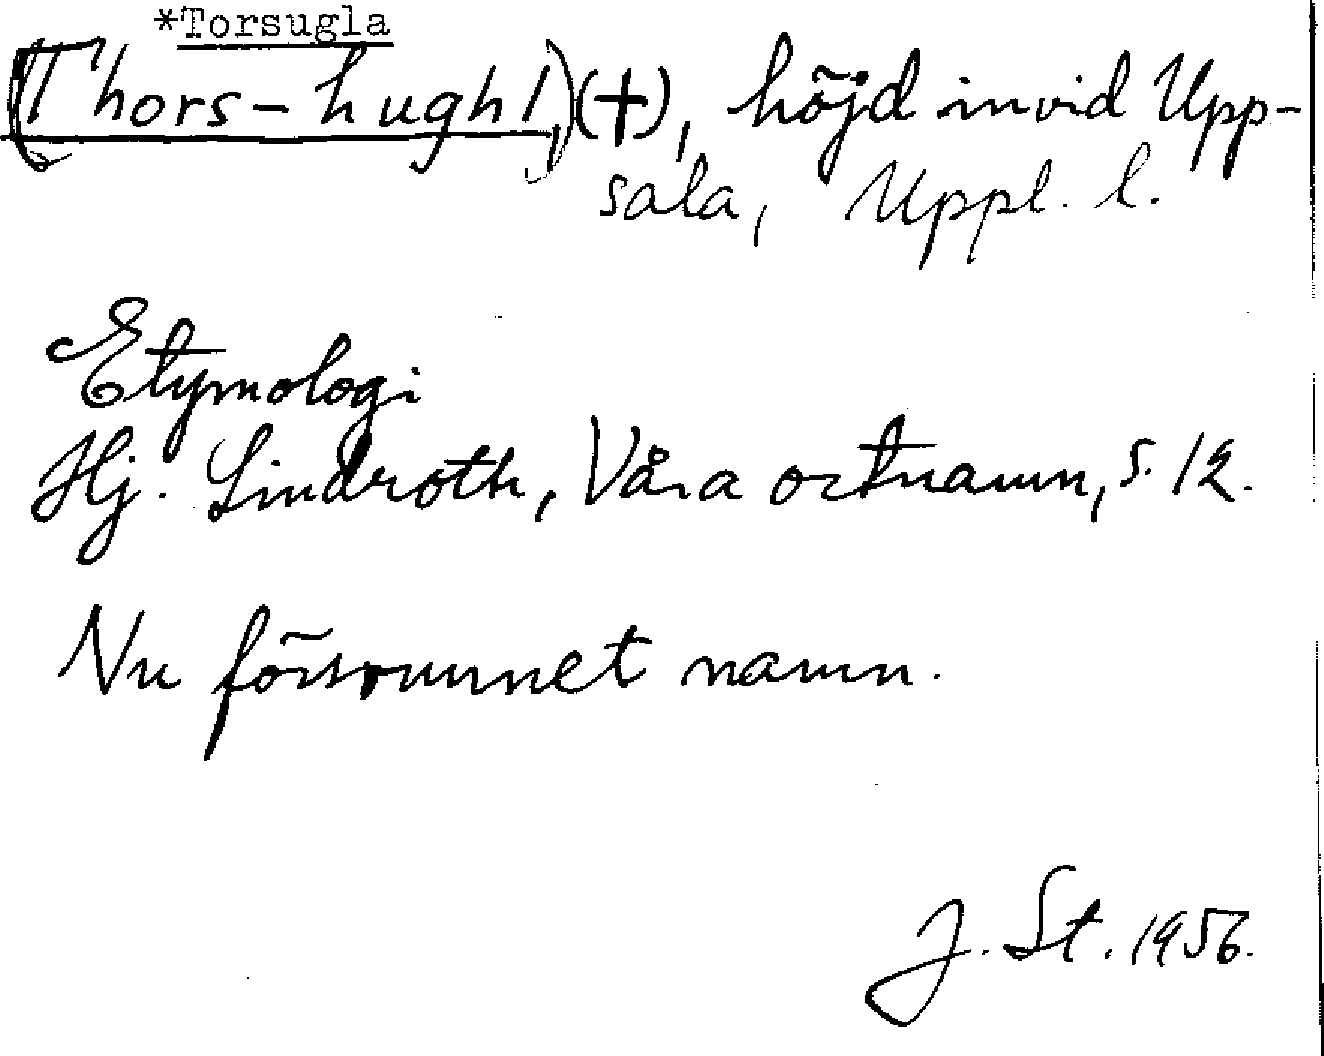 *Torsugla
(Thors-hughl,)(+), höjd invid Upp-
sala, Uppl. l.
Etymologi
Hj. Lindroth, Våra ortnamn, s. 12.
Nu försvunnet namn.
J. St. 1956.